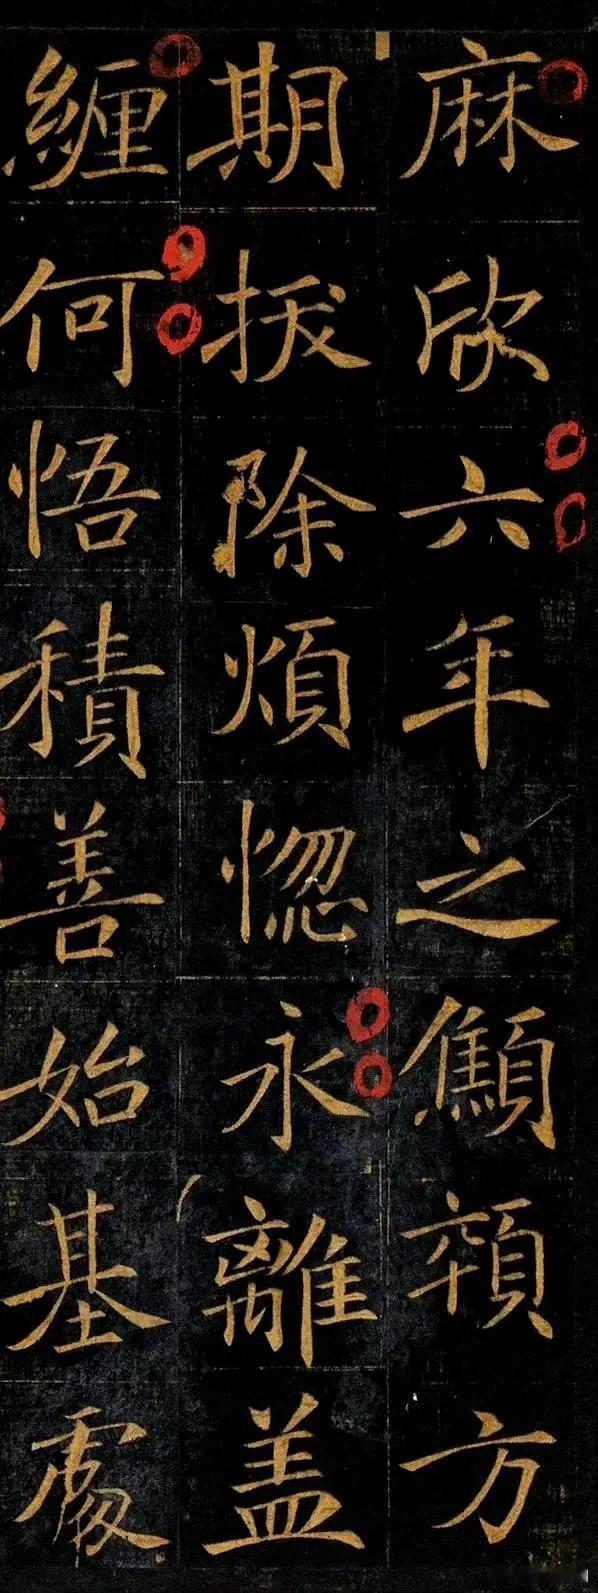 麻欣六年之顦顇方
期拔除煩惚永離盖
纏何悟積善始基處